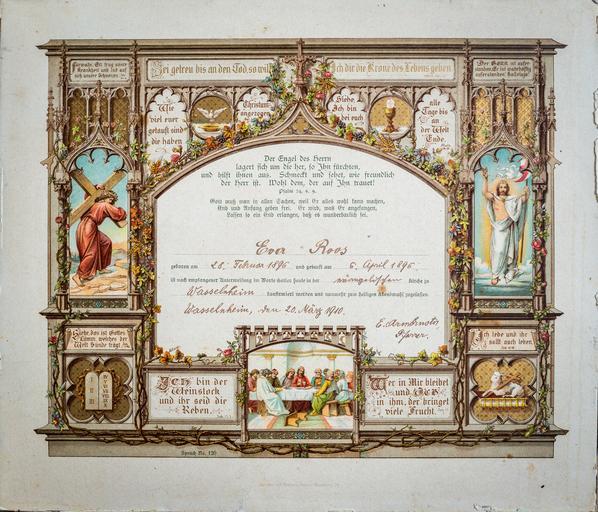 Fürwahr, Er trug unsre
Krankheit und lud auf
sich unsere Schmerzen.
Sei getreu bis an den Tod, so will
Ich dir die Krone des Lebens geben.
Der HErr ist aufer-
standen, Er ist wahrhaftig
auferstanden. Halleluja!
Wie
viel euer
getauft sind
die haben
Christum
angezogen
Siehe
Ich bin
bei euch
alle
Tage bis
an
der Welt
Ende.
Der Engel des Herrn
lagert sich um die her, so Ihn fürchten,
und hilft ihnen aus. Schmeckt und sehet, wie freundlich
der Herr ist. Wohl dem, der auf Ihn trauet!
Psalm 34, 8. 9.
Gott muß man in allen Sachen, weil Er alles wohl kann machen,
End und Anfang geben frei. Er wird, was Er angefangen,
Lassen so ein End erlangen, daß es wunderbarlich sei.
Eva Roos
geboren am 28. Februar 1896 und getauft am 6. April 1896
ist nach empfangener Unterweisung im Worte Gottes heute in der evangelischen Kirche zu
Wasselnheim konfirmiert worden und nunmehr zum heiligen Abendmahl zugelassen.
Wasselnheim, den 20. März 1910.
Pfarrer.
Siehe, das ist Gottes
Lamm, welches der
Welt Sünde trägt.
Ich lebe und ihr
sollt auch leben.
ICH bin der
Weinstock
und ihr seid die
Reben.
Wer in Mir bleibet
und ICH
in ihm, der bringet
viele Frucht.
Spruch No. 120